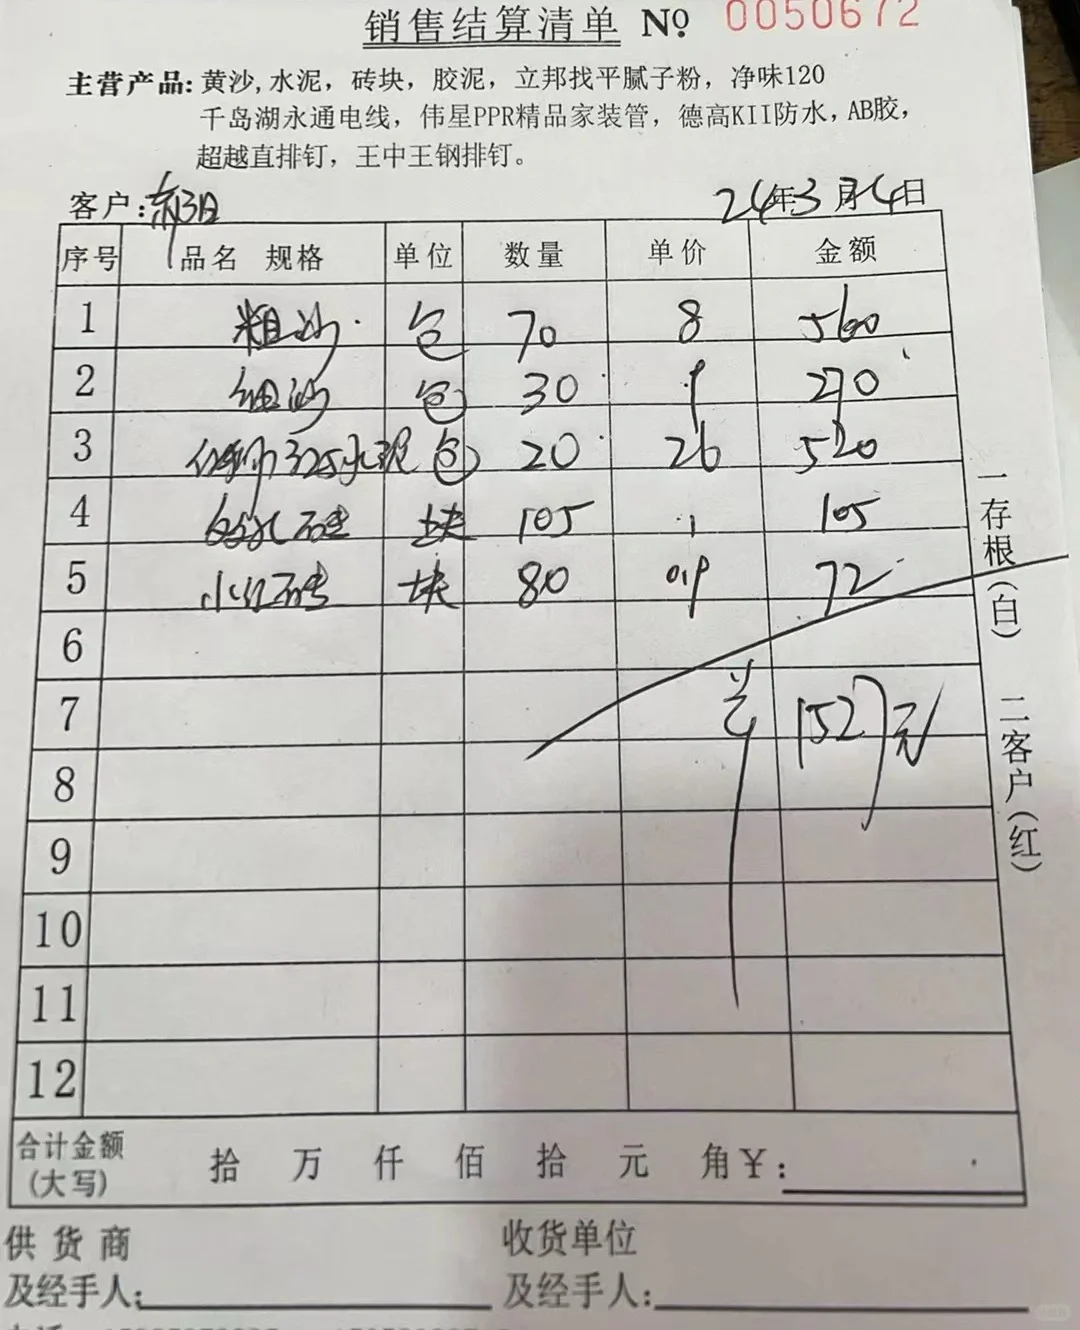 销售结算清单 No. 0050672
主营产品: 黄沙, 水泥, 砖块, 胶泥, 立邦找平腻子粉, 净味120
千岛湖永通电线, 伟星PPR精品家装管, 德高KII防水, AB胶,
超越直排钉, 王中王钢排钉。
客户: 24年3月4日
序号 品名 规格 单位 数量 单价 金额
1 粗沙 包 70 8 560
2 细沙 包 30 9 270
3 325水泥 包 20 26 520
4 砖 块 105 1 105
5 小红砖 块 80 0.9 72
6
7 1527元
8
9
10
11
12
合计金额
(大写) 拾 万 仟 佰 拾 元 角 ¥:
一存根(白) 二客户(红)
供货商 收货单位
及经手人: 及经手人: